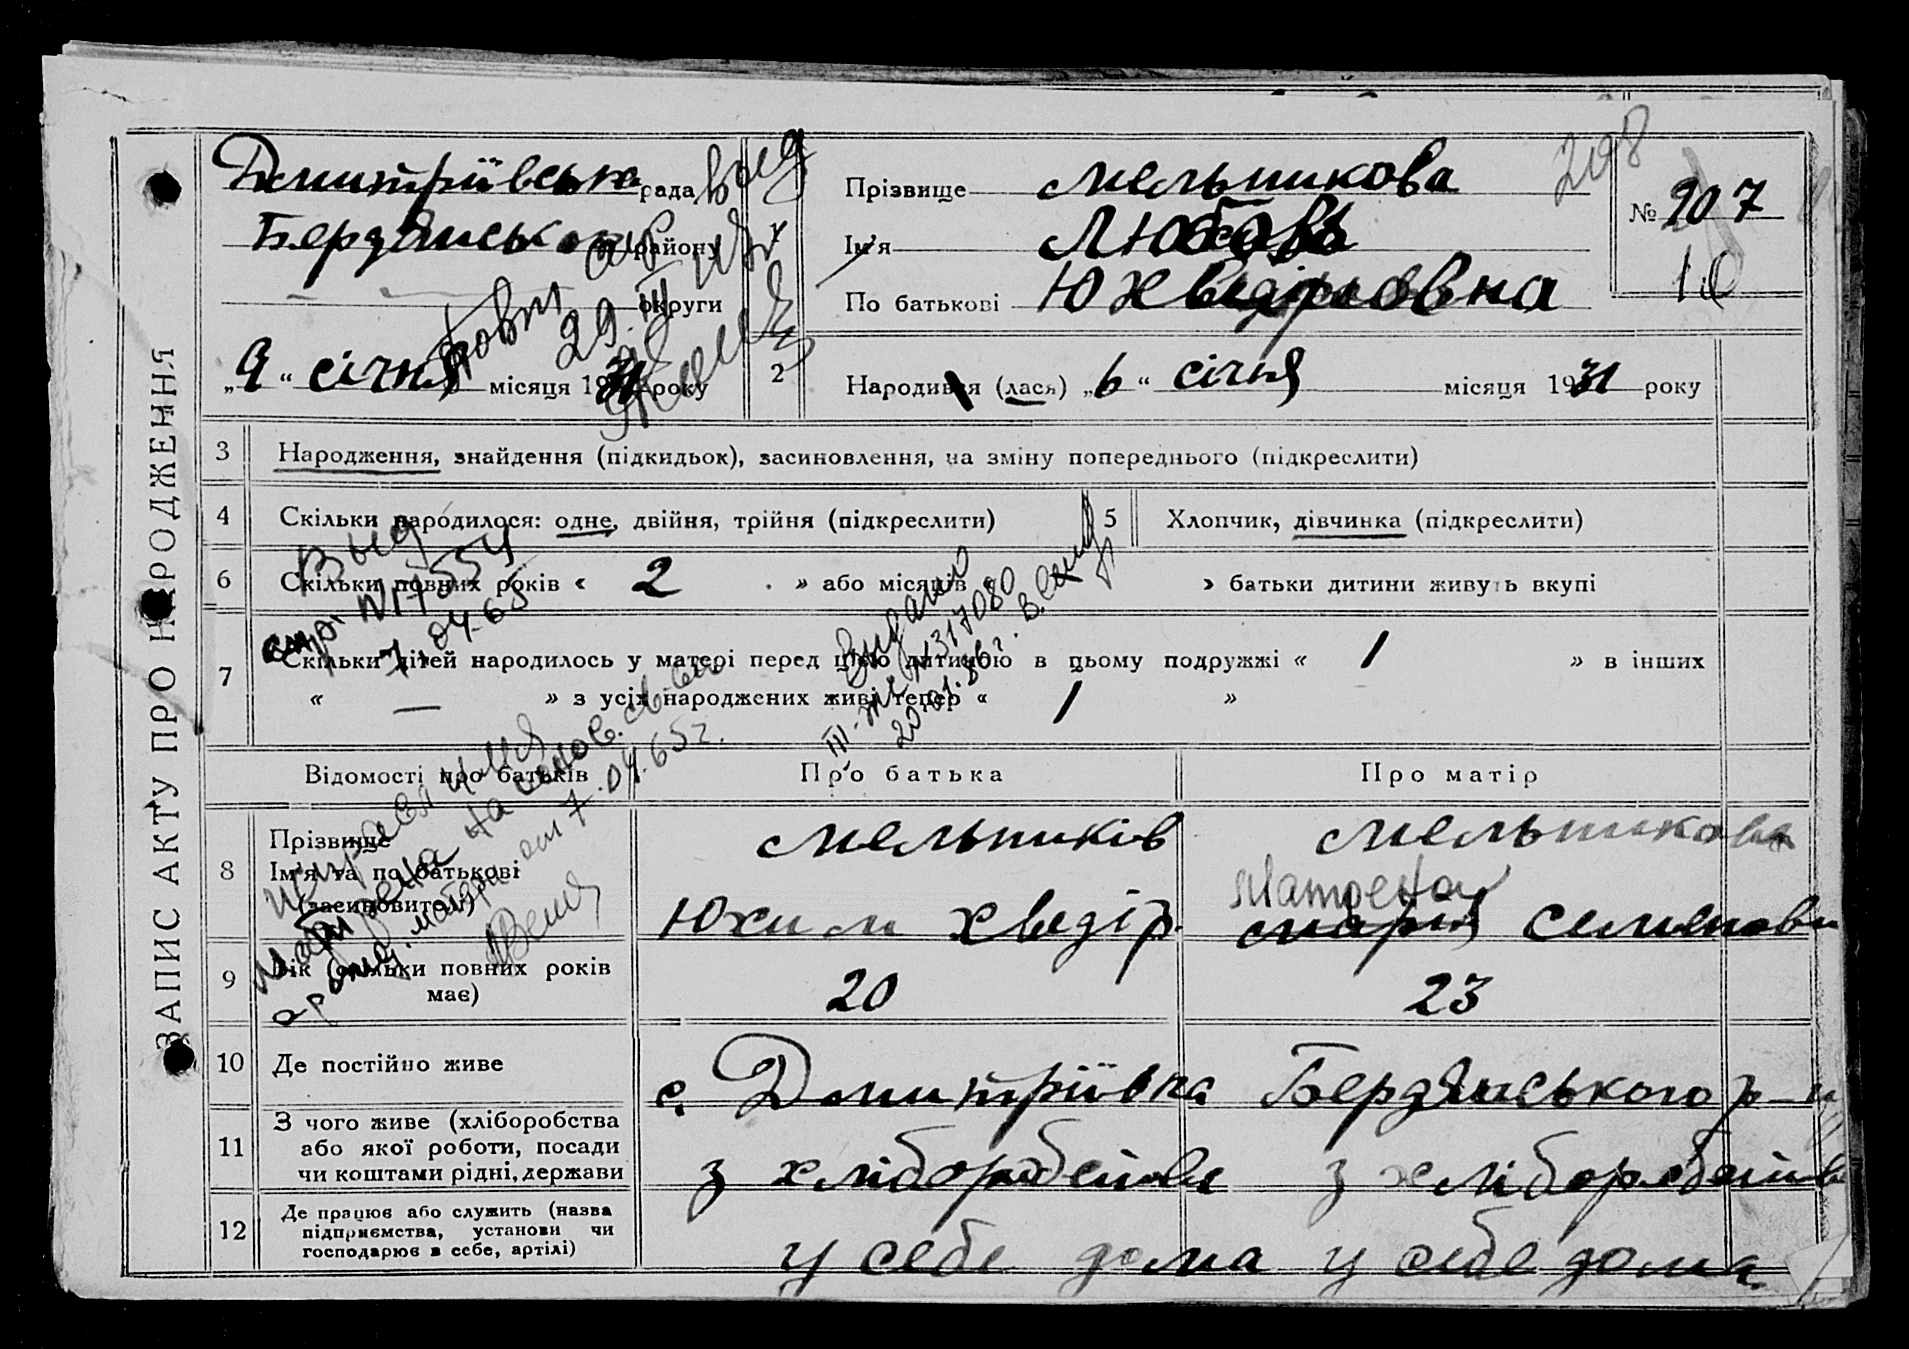 ЗАПИС АКТУ ПРО НАРОДЖЕННЯ
Дмитріївська рада
Бердянського району
округи
„9“ січня місяця 1931 року
2
Прізвище Мельникова
Ім'я Любовь
По батькові Юхвідіровна
208
№ 207
10
Народився (лася) „6“ січня місяця 1931 року
3 Народження, знайдення (підкидьок), засиновлення, на зміну попереднього (підкреслити)
4 Скільки народилося: одне, двійня, трійня (підкреслити)
5 Хлопчик, дівчинка (підкреслити)
6 Скільки повних років « 2 » або місяців » батьки дитини живуть вкупі
7 Скільки дітей народилось у матері перед цією дитиною в цьому подружжі « 1 » в інших
« — » з усіх народжених живі тепер « 1 »
Выд
N 17554
7.04.65
Выдано
III-ЖС N317080
20.01.86г.
Відомості про батьків
Про батька
Про матір
8 Прізвище
Ім'я та по батькові
(засиновителі)
Мельників
Юхим Хведір.
Мельникова
Матрена
Марія Семеновн
9 Вік (скільки повних років має)
20
23
10 Де постійно живе
с. Дмитріївка Бердянського р-н
11 З чого живе (хліборобства
або якої роботи, посади
чи коштами рідні, держави
з хліборобства
з хліборобств
12 Де працює або служить (назва
підприємства, установи чи
господарює в себе, артілі)
у себе дома
у себе дома